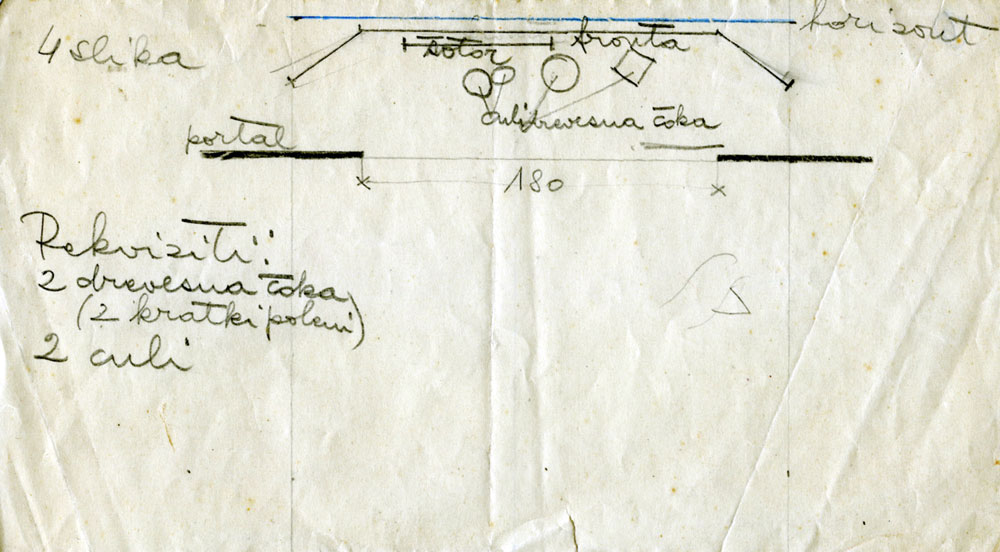 4 slika
horizont
šotor
fronta
culi drevesna čoka
portal
180
Rekviziti:
2 drevesna čoka
(2 kratki poleni)
2 culi